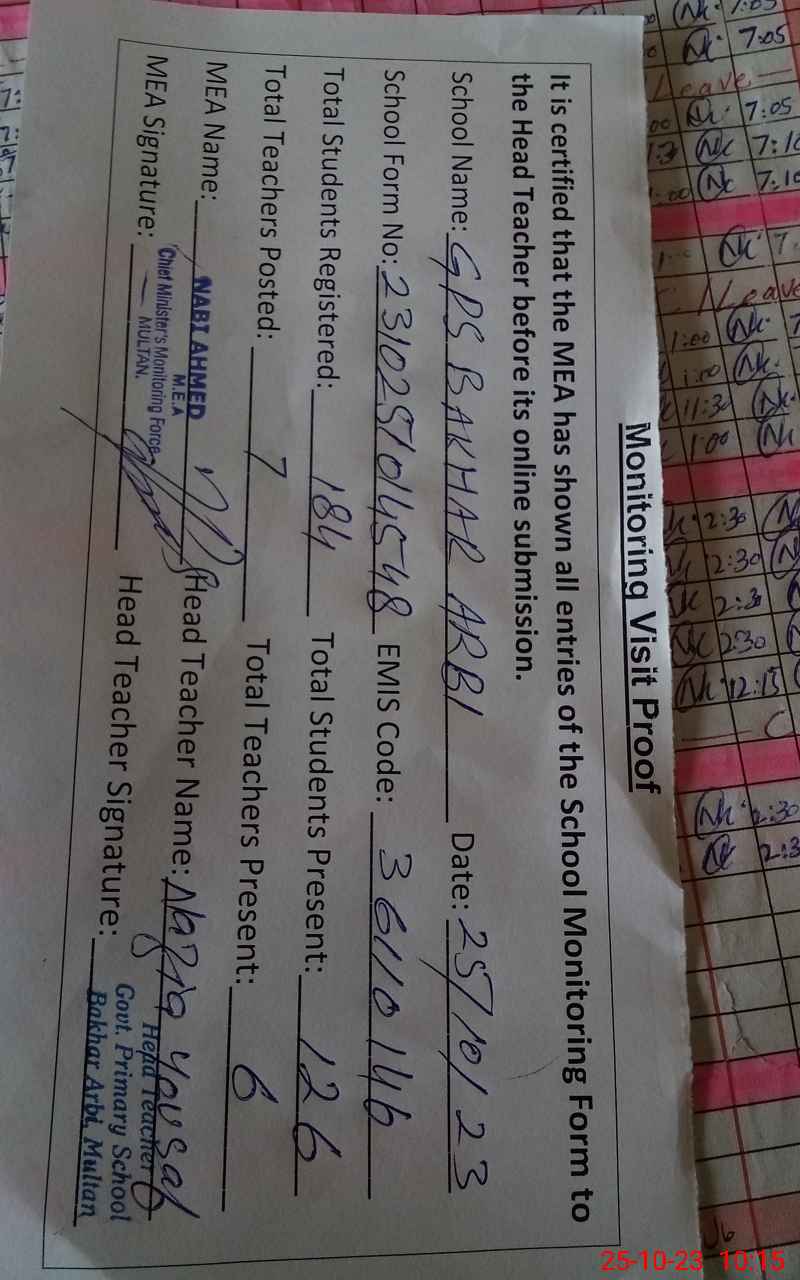 Monitoring Visit Proof
It is certified that the MEA has shown all entries of the School Monitoring Form to
the Head Teacher before its online submission.
School Name: GPS BAKHAR ARBI Date: 25/10/23
School Form No: 231025104548 EMIS Code: 36110146
Total Students Registered: 184 Total Students Present: 126
Total Teachers Posted: 7 Total Teachers Present: 6
MEA Name: Head Teacher Name: Nazia Yousaf
NABI AHMED
M.E.A
Chief Minister's Monitoring Force
MULTAN.
MEA Signature: Head Teacher Signature:
Head Teacher
Govt. Primary School
Bakhar Arbi, Multan
7:05
7:05
Leave
7:05
7:10
7:10
Leave
1:00
1:00
11:30
1:00
2:30
2:30
2:30
2:30
12:15
2:30
25-10-23 10:15